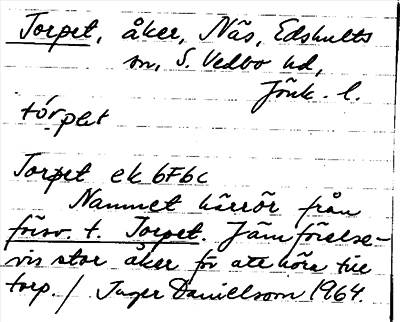 Torpet, åker, Näs, Edshults
sn, S. Vedbo hd,
Jönk. l.
tórpet
Torpet ek 6F6c
Namnet härrör från
försv. t. Torpet. Jämförelse-
vis stor åker för att höra till
torp. / Inger Danielsson 1964.